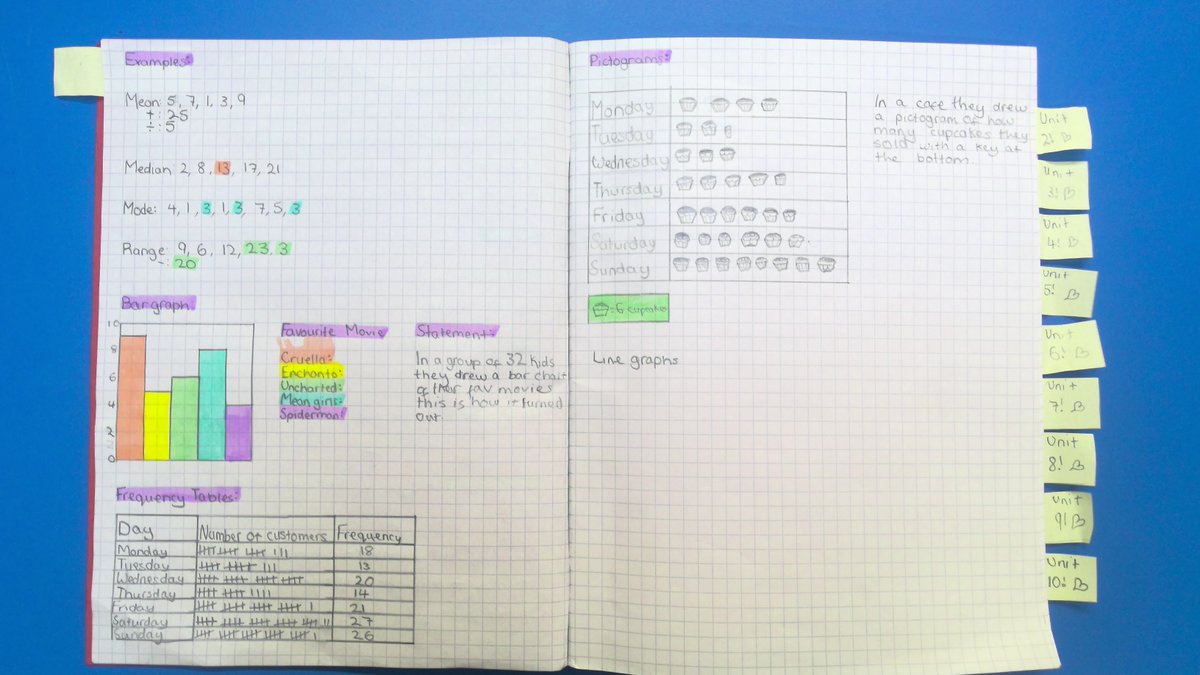 Examples:
Mean: 5, 7, 1, 3, 9
+: 25
÷: 5
Median: 2, 8, 13, 17, 21
Mode: 4, 1, 3, 1, 3, 7, 5, 3
Range: 9, 6, 12, 23, 3
-: 20
Bar graph:
10
8
6
4
2
0
Favourite Movie
Cruella:
Enchanto:
Uncharted:
Mean girls:
Spiderman:
Statement:
In a group of 32 kids
they drew a bar chart
of their fav movies
this is how it turned
out.
Frequency Tables:
Day Number of customers Frequency
Monday 18
Tuesday 13
Wednesday 20
Thursday 14
Friday 21
Saturday 27
Sunday 26
Pictograms:
Monday
Tuesday
Wednesday
Thursday
Friday
Saturday
Sunday
= 6 cupcakes
In a cafe they drew
a pictogram of how
many cupcakes they
sold with a key at
the bottom.
Line graphs
Unit
2!
Unit
3!
Unit
4!
Unit
5!
Unit
6!
Unit
7!
Unit
8!
Unit
9!
Unit
10!